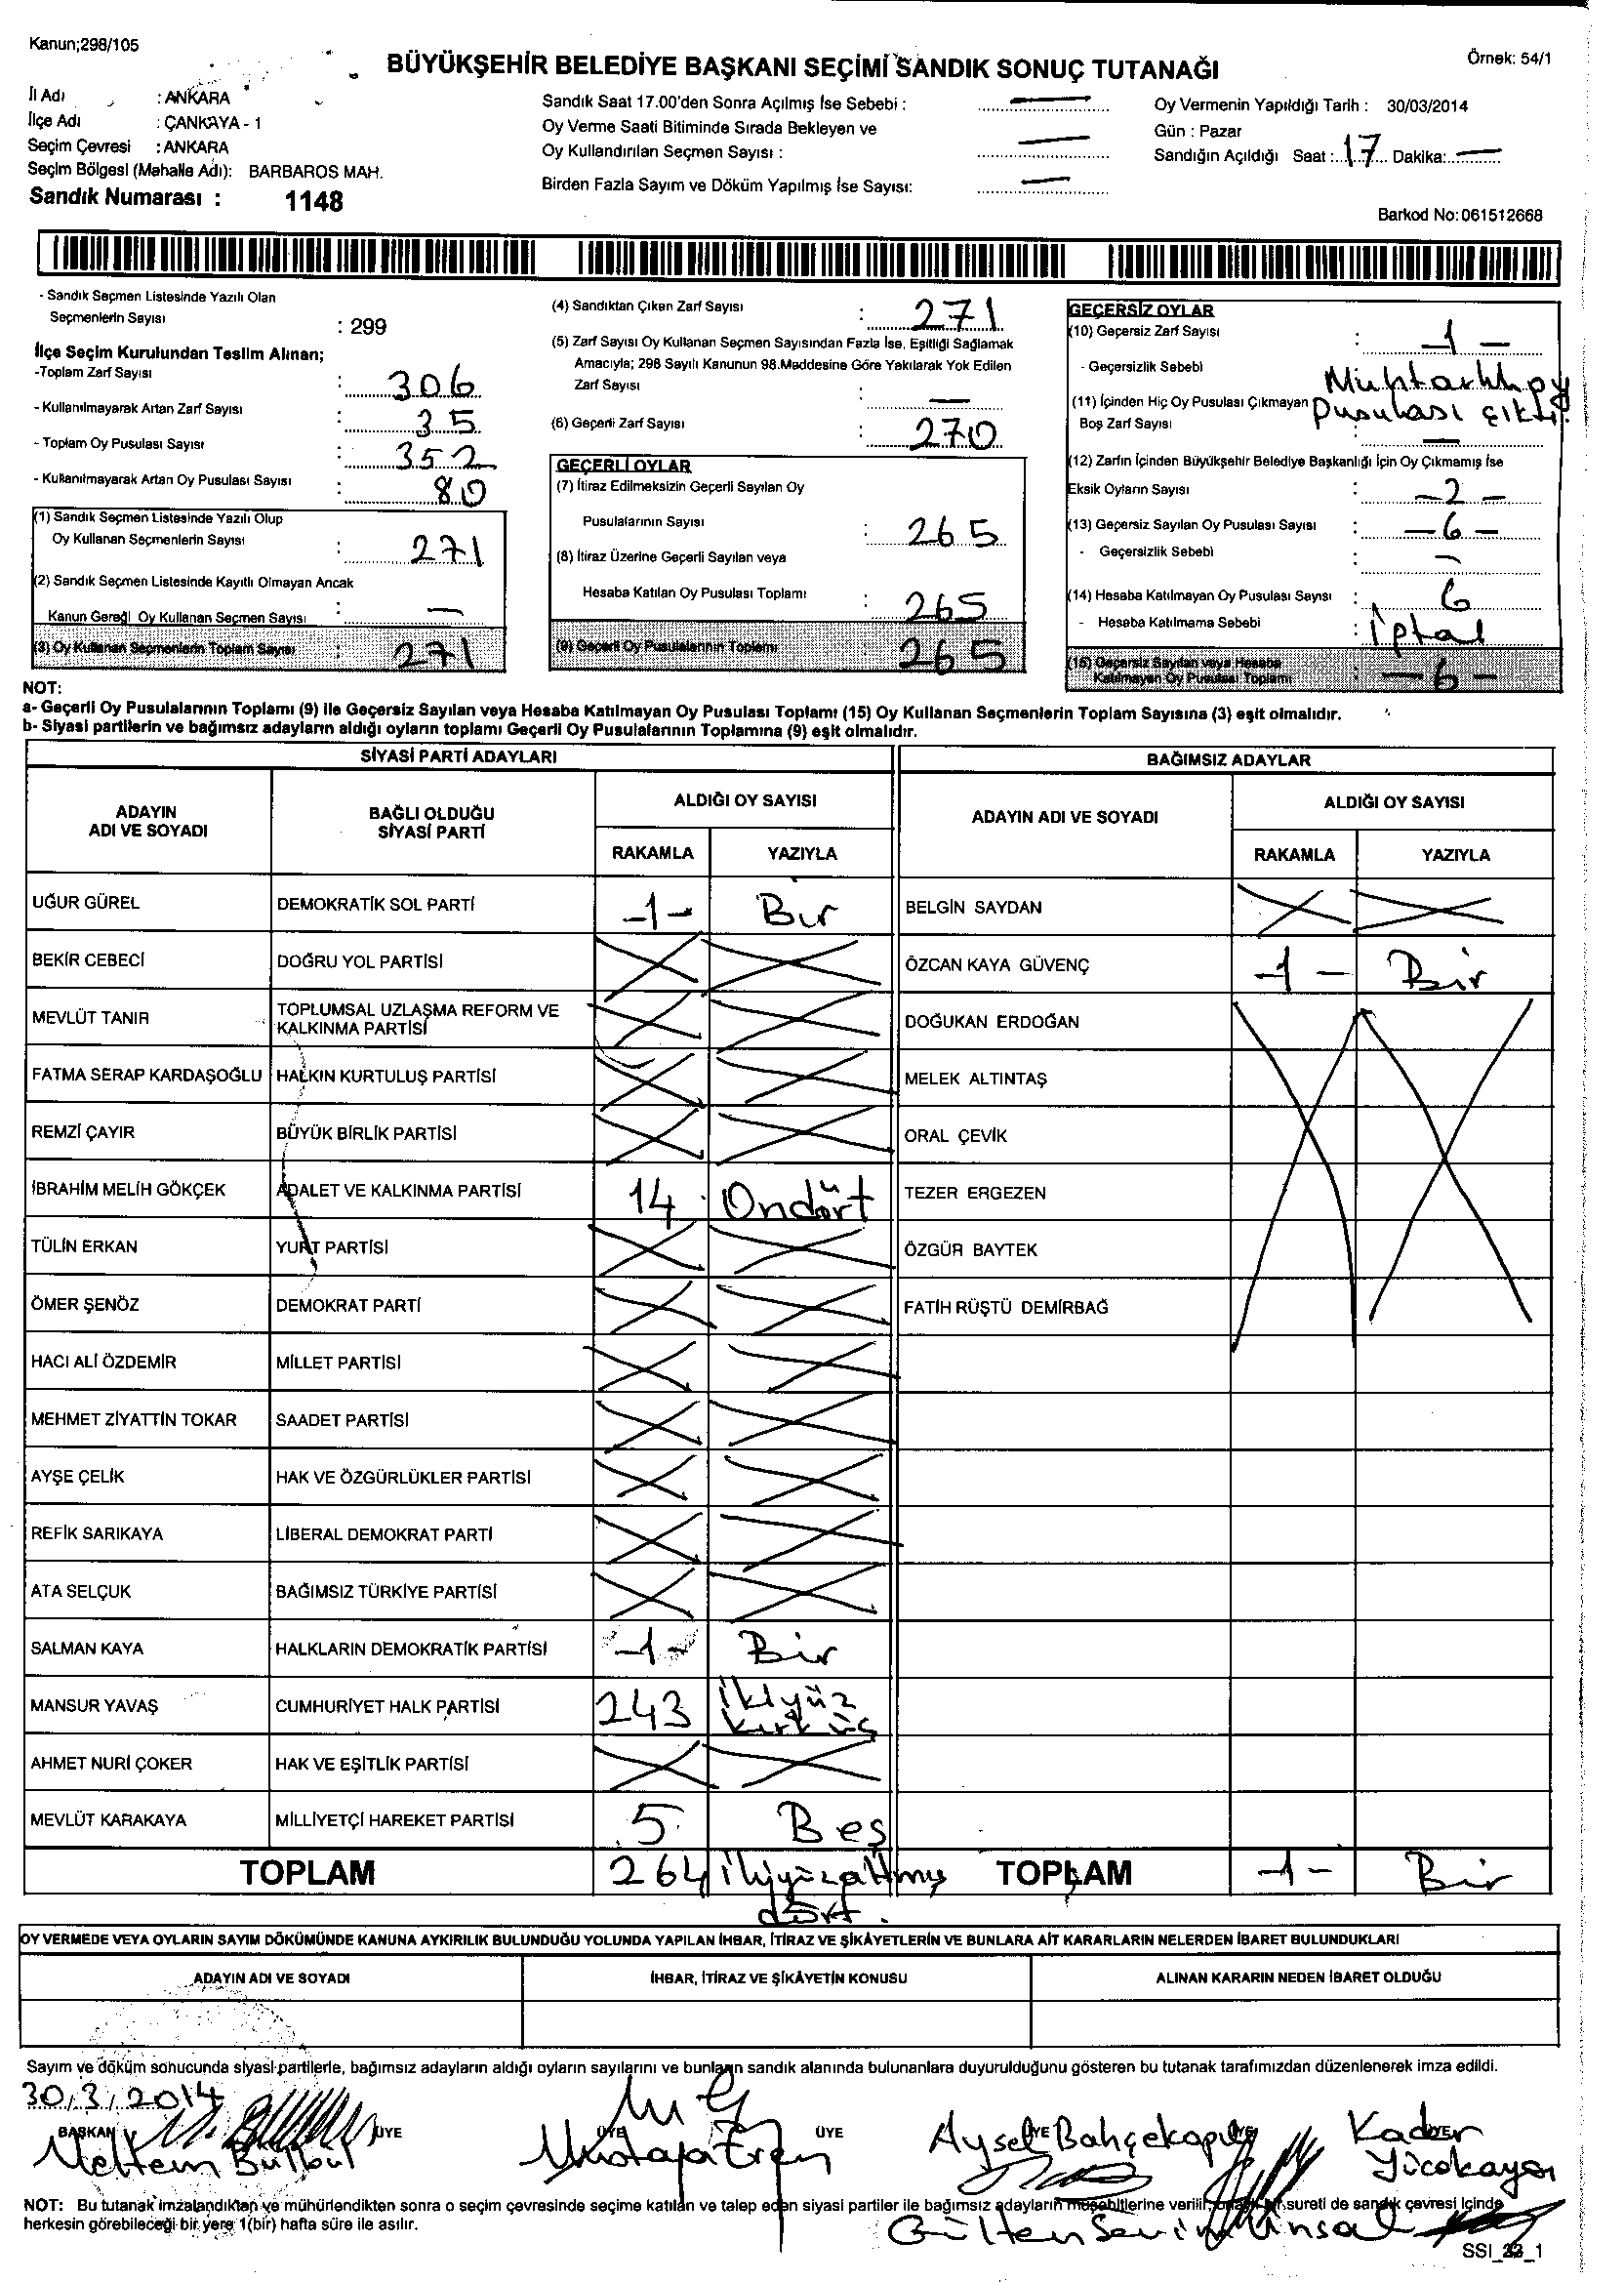 Kanun;298/105
BÜYÜKŞEHİR BELEDİYE BAŞKANI SEÇİMİ SANDIK SONUÇ TUTANAĞI
Örnek: 54/1
İl Adı : ANKARA
İlçe Adı : ÇANKAYA - 1
Seçim Çevresi : ANKARA
Seçim Bölgesi (Mahalle Adı): BARBAROS MAH.
Sandık Numarası : 1148
Sandık Saat 17.00'den Sonra Açılmış İse Sebebi : —
Oy Verme Saati Bitiminde Sırada Bekleyen ve
Oy Kullandırılan Seçmen Sayısı : —
Birden Fazla Sayım ve Döküm Yapılmış İse Sayısı: —
Oy Vermenin Yapıldığı Tarih : 30/03/2014
Gün : Pazar
Sandığın Açıldığı Saat : 17 Dakika: —
Barkod No: 061512668
- Sandık Seçmen Listesinde Yazılı Olan
Seçmenlerin Sayısı : 299
İlçe Seçim Kurulundan Teslim Alınan;
-Toplam Zarf Sayısı : 306
- Kullanılmayarak Artan Zarf Sayısı : 35
- Toplam Oy Pusulası Sayısı : 352
- Kullanılmayarak Artan Oy Pusulası Sayısı : 80
(1) Sandık Seçmen Listesinde Yazılı Olup
Oy Kullanan Seçmenlerin Sayısı : 271
(2) Sandık Seçmen Listesinde Kayıtlı Olmayan Ancak
Kanun Gereği Oy Kullanan Seçmen Sayısı : —
(3) Oy Kullanan Seçmenlerin Toplam Sayısı : 271
(4) Sandıktan Çıkan Zarf Sayısı : 271
(5) Zarf Sayısı Oy Kullanan Seçmen Sayısından Fazla İse, Eşitliği Sağlamak
Amacıyla; 298 Sayılı Kanunun 98.Maddesine Göre Yakılarak Yok Edilen
Zarf Sayısı : —
(6) Geçerli Zarf Sayısı : 270
GEÇERLİ OYLAR
(7) İtiraz Edilmeksizin Geçerli Sayılan Oy
Pusulalarının Sayısı : 265
(8) İtiraz Üzerine Geçerli Sayılan veya
Hesaba Katılan Oy Pusulası Toplamı : 265
(9) Geçerli Oy Pusulalarının Toplamı : 265
GEÇERSİZ OYLAR
(10) Geçersiz Zarf Sayısı : -1-
- Geçersizlik Sebebi Muhtarlık oy
pusulası çıktı.
(11) İçinden Hiç Oy Pusulası Çıkmayan
Boş Zarf Sayısı : —
(12) Zarfın İçinden Büyükşehir Belediye Başkanlığı İçin Oy Çıkmamış İse
Eksik Oyların Sayısı : -2-
(13) Geçersiz Sayılan Oy Pusulası Sayısı : -6-
- Geçersizlik Sebebi : -
(14) Hesaba Katılmayan Oy Pusulası Sayısı : 6
- Hesaba Katılmama Sebebi : iptal
(15) Geçersiz Sayılan veya Hesaba
Katılmayan Oy Pusulası Toplamı : -6-
NOT:
a- Geçerli Oy Pusulalarının Toplamı (9) ile Geçersiz Sayılan veya Hesaba Katılmayan Oy Pusulası Toplamı (15) Oy Kullanan Seçmenlerin Toplam Sayısına (3) eşit olmalıdır.
b- Siyasi partilerin ve bağımsız adayların aldığı oyların toplamı Geçerli Oy Pusulalarının Toplamına (9) eşit olmalıdır.
SİYASİ PARTİ ADAYLARI
ADAYIN ADI VE SOYADI
BAĞLI OLDUĞU SİYASİ PARTİ
ALDIĞI OY SAYISI
RAKAMLA YAZIYLA
UĞUR GÜREL DEMOKRATİK SOL PARTİ -1- Bir
BEKİR CEBECİ DOĞRU YOL PARTİSİ
MEVLÜT TANIR TOPLUMSAL UZLAŞMA REFORM VE KALKINMA PARTİSİ
FATMA SERAP KARDAŞOĞLU HALKIN KURTULUŞ PARTİSİ
REMZİ ÇAYIR BÜYÜK BİRLİK PARTİSİ
İBRAHİM MELİH GÖKÇEK ADALET VE KALKINMA PARTİSİ 14 Ondört
TÜLİN ERKAN YURT PARTİSİ
ÖMER ŞENÖZ DEMOKRAT PARTİ
HACI ALİ ÖZDEMİR MİLLET PARTİSİ
MEHMET ZİYATTİN TOKAR SAADET PARTİSİ
AYŞE ÇELİK HAK VE ÖZGÜRLÜKLER PARTİSİ
REFİK SARIKAYA LİBERAL DEMOKRAT PARTİ
ATA SELÇUK BAĞIMSIZ TÜRKİYE PARTİSİ
SALMAN KAYA HALKLARIN DEMOKRATİK PARTİSİ -1- Bir
MANSUR YAVAŞ CUMHURİYET HALK PARTİSİ 243 İkiyüz kırküç
AHMET NURİ ÇOKER HAK VE EŞİTLİK PARTİSİ
MEVLÜT KARAKAYA MİLLİYETÇİ HAREKET PARTİSİ 5 Beş
TOPLAM 264 ikiyüzaltmış dört.
BAĞIMSIZ ADAYLAR
ADAYIN ADI VE SOYADI
ALDIĞI OY SAYISI
RAKAMLA YAZIYLA
BELGİN SAYDAN
ÖZCAN KAYA GÜVENÇ -1- Bir
DOĞUKAN ERDOĞAN
MELEK ALTINTAŞ
ORAL ÇEVİK
TEZER ERGEZEN
ÖZGÜR BAYTEK
FATİH RÜŞTÜ DEMİRBAĞ
TOPLAM -1- Bir
OY VERMEDE VEYA OYLARIN SAYIM DÖKÜMÜNDE KANUNA AYKIRILIK BULUNDUĞU YOLUNDA YAPILAN İHBAR, İTİRAZ VE ŞİKÂYETLERİN VE BUNLARA AİT KARARLARIN NELERDEN İBARET BULUNDUKLARI
ADAYIN ADI VE SOYADI İHBAR, İTİRAZ VE ŞİKÂYETİN KONUSU ALINAN KARARIN NEDEN İBARET OLDUĞU
Sayım ve döküm sonucunda siyasi partilerle, bağımsız adayların aldığı oyların sayılarını ve bunların sandık alanında bulunanlara duyurulduğunu gösteren bu tutanak tarafımızdan düzenlenerek imza edildi.
30/3/2014
BAŞKAN ÜYE ÜYE ÜYE ÜYE ÜYE
Meltem Bülbül Mustafa Eren Aysel Bahçekapılı Kader
Gülten Sevim Ünsal
NOT: Bu tutanak imzalandıktan ve mühürlendikten sonra o seçim çevresinde seçime katılan ve talep eden siyasi partiler ile bağımsız adayların müşahitlerine verilir, sureti de sandık çevresi içinde
herkesin görebileceği bir yere 1(bir) hafta süre ile asılır.